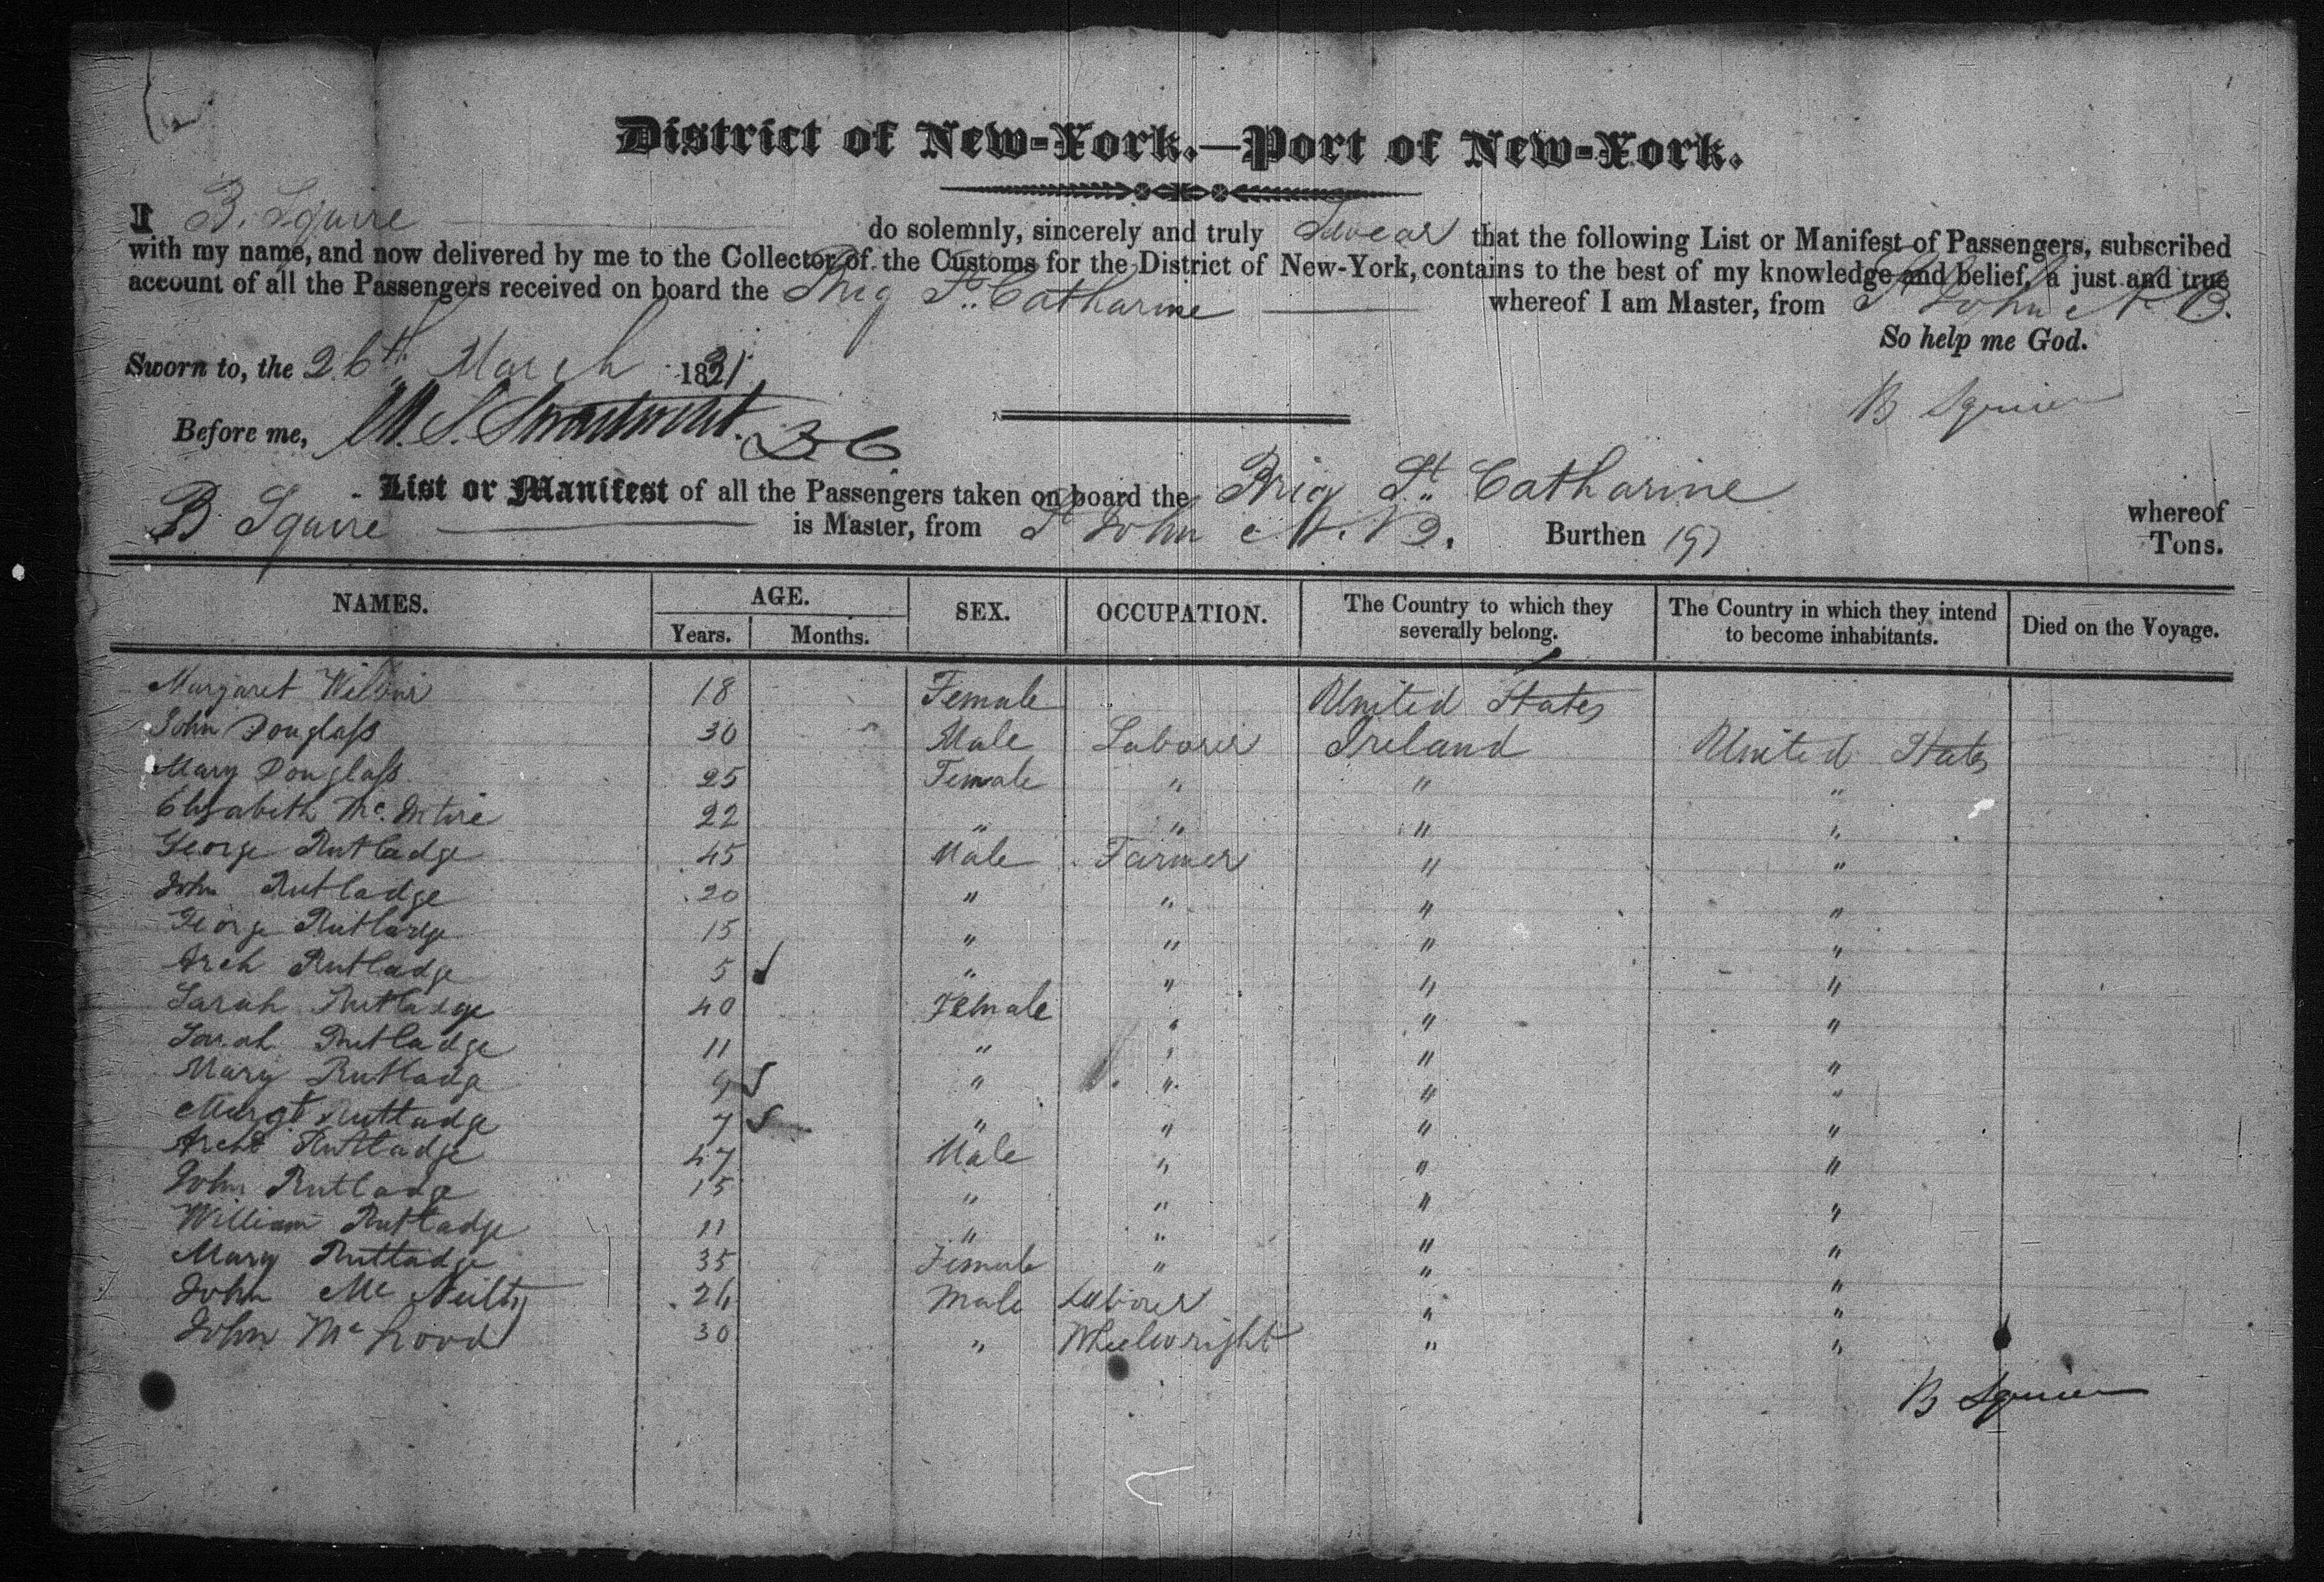 District of New-York.—Port of New-York.
I B. Squire do solemnly, sincerely and truly Swear that the following List or Manifest of Passengers, subscribed
with my name, and now delivered by me to the Collector of the Customs for the District of New-York, contains to the best of my knowledge and belief, a just and true
account of all the Passengers received on board the Brig St. Catharine whereof I am Master, from St John N B.
So help me God.
Sworn to, the 26th March 1831
B Squier
Before me,
List or Manifest of all the Passengers taken on board the Brig St. Catharine whereof
B. Squire is Master, from St John N. B. Burthen 197 Tons.
NAMES. AGE. SEX. OCCUPATION. The Country to which they severally belong. The Country in which they intend to become inhabitants. Died on the Voyage.
Years. Months.
Margaret 18 Female United States
John Douglass 30 Male Laborer Ireland United States
Mary Douglass 25 Female " " "
Elizabeth Mc.Intire 22 " " " "
George Rutladge 45 Male Farmer " "
John Rutladge 20 " " " "
George Rutladge 15 " " " "
Arch Rutladge 5 " " " "
Sarah Rutladge 40 Female " " "
Sarah Rutladge 11 " " " "
Mary Rutladge 9 " " " "
Margt Rutladge 7 " " " "
Archd Rutladge 47 Male " " "
John Rutladge 15 " " " "
William Rutladge 11 " " " "
Mary Rutladge 35 Female " " "
John Mc Neilty 24 Male Laborer " "
John Mc 30 " Wheelwright " "
B Squier